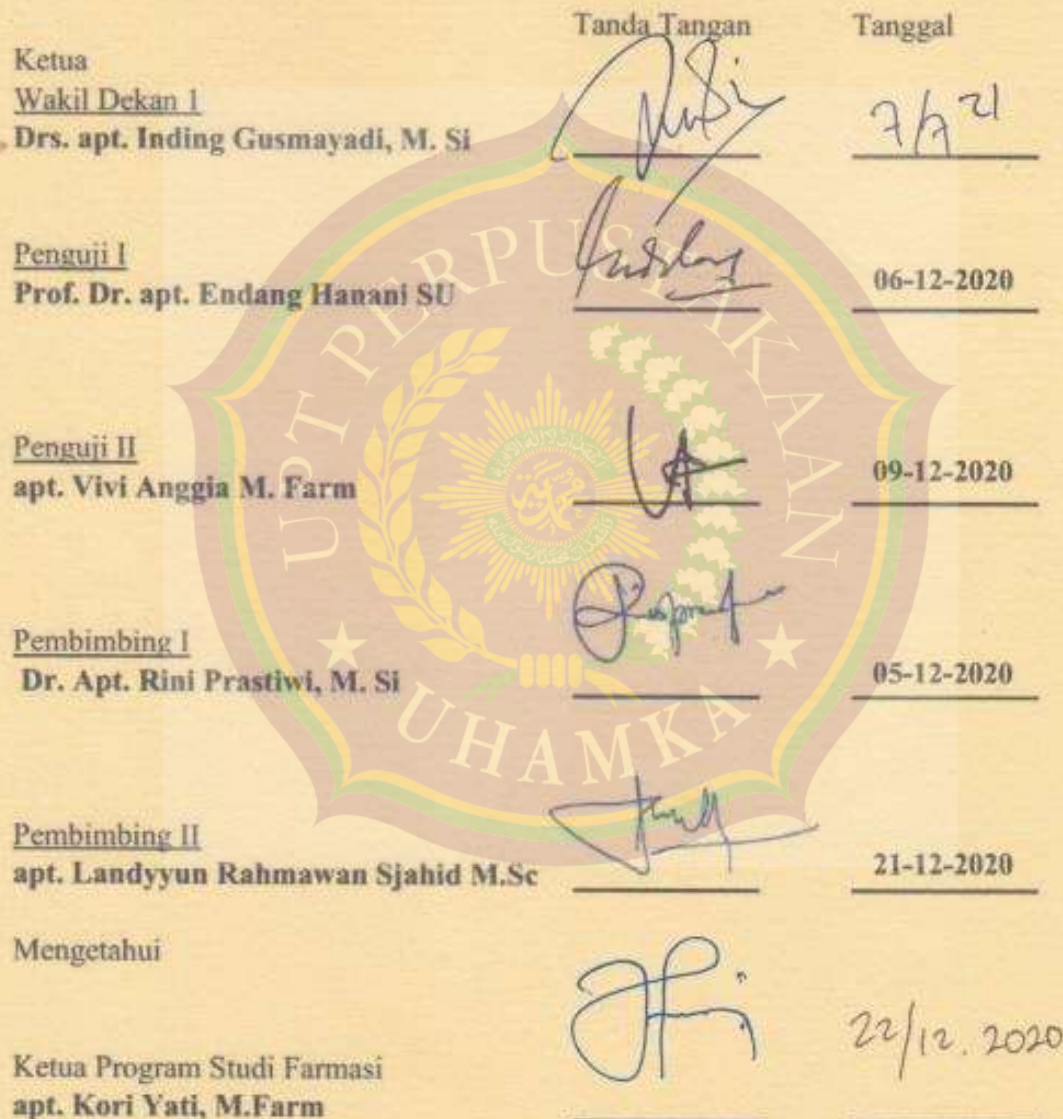 Tanda Tangan Tanggal
Ketua
Wakil Dekan 1
Drs. apt. Inding Gusmayadi, M. Si
7/7 21
Penguji I
Prof. Dr. apt. Endang Hanani SU 06-12-2020
Penguji II
apt. Vivi Anggia M. Farm 09-12-2020
Pembimbing I
Dr. Apt. Rini Prastiwi, M. Si 05-12-2020
Pembimbing II
apt. Landyyun Rahmawan Sjahid M.Sc 21-12-2020
Mengetahui
22/12. 2020
Ketua Program Studi Farmasi
apt. Kori Yati, M.Farm
UPT PERPUSTAKAAN
UHAMKA